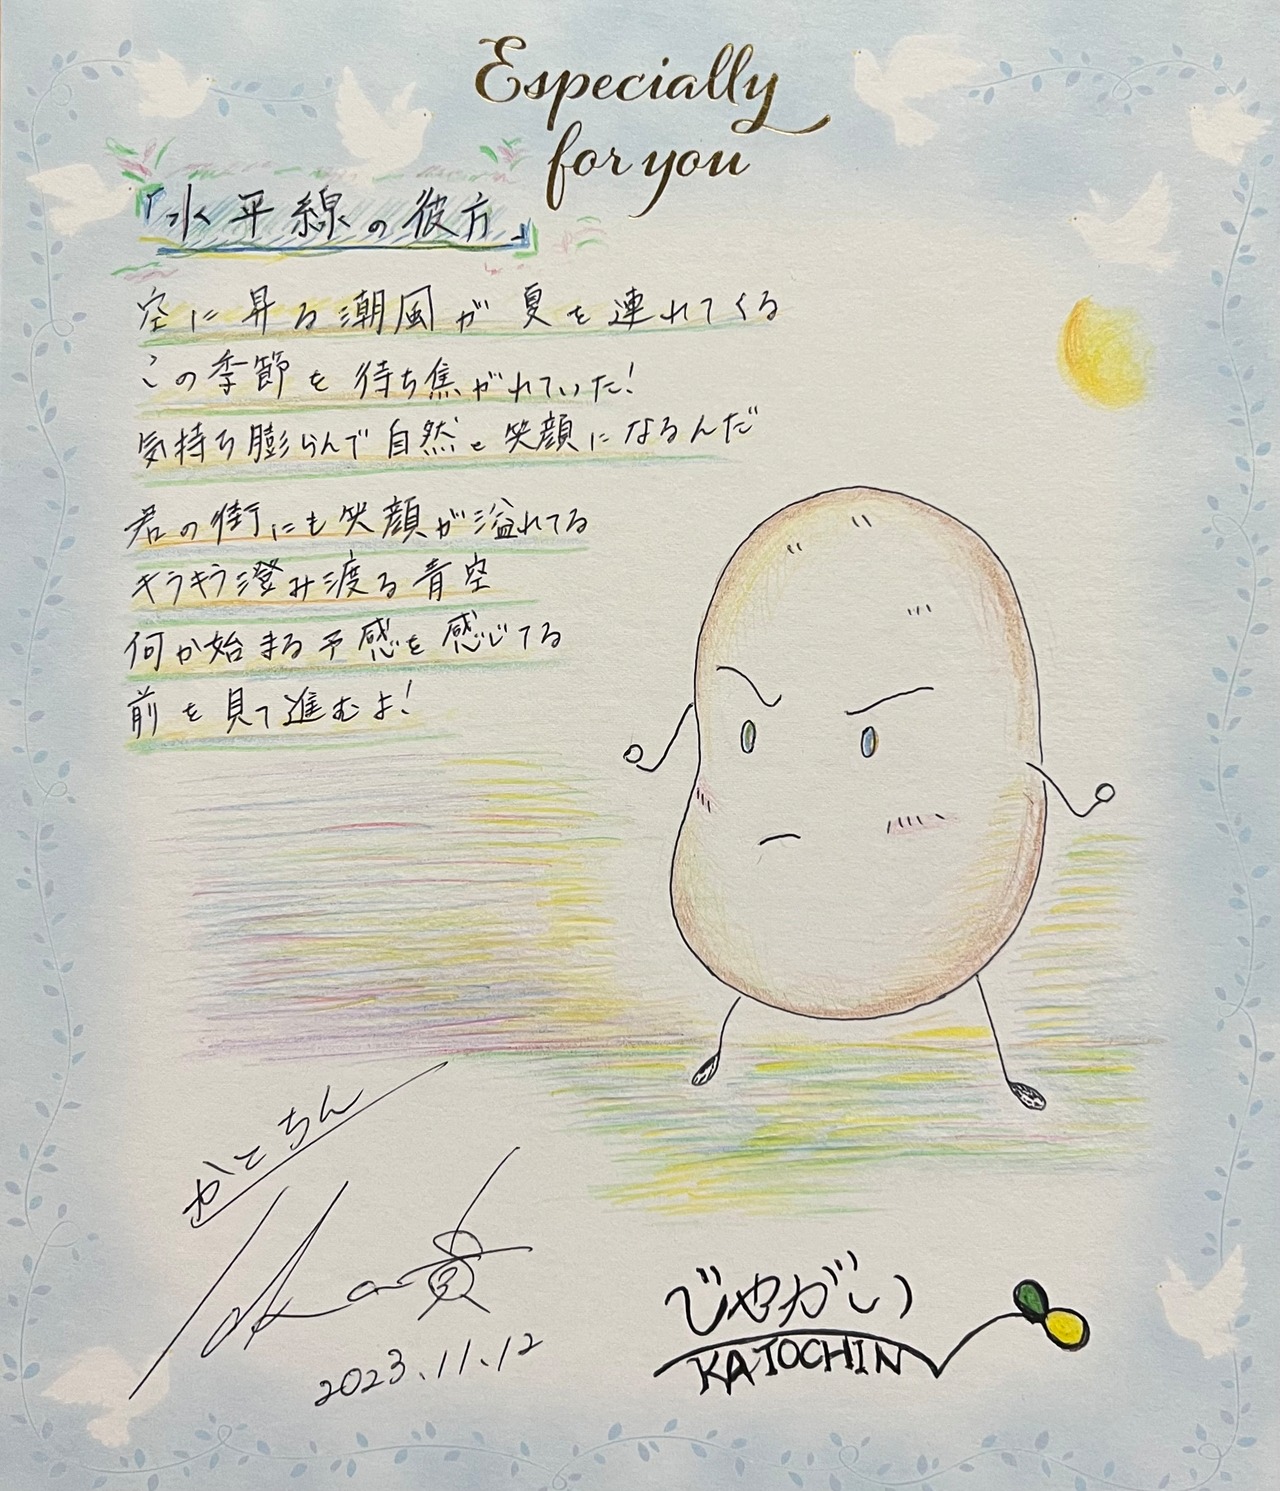 Especially
for you
「水平線の彼方」
空に昇る潮風が夏を連れてくる
この季節を待ち焦がれていた!
気持ち膨らんで自然と笑顔になるんだ
君の街にも笑顔が溢れてる
キラキラ澄み渡る青空
何か始まる予感を感じてる
前を見て進むよ!
かとちん
2023.11.12
じゃがいも
KATOCHIN